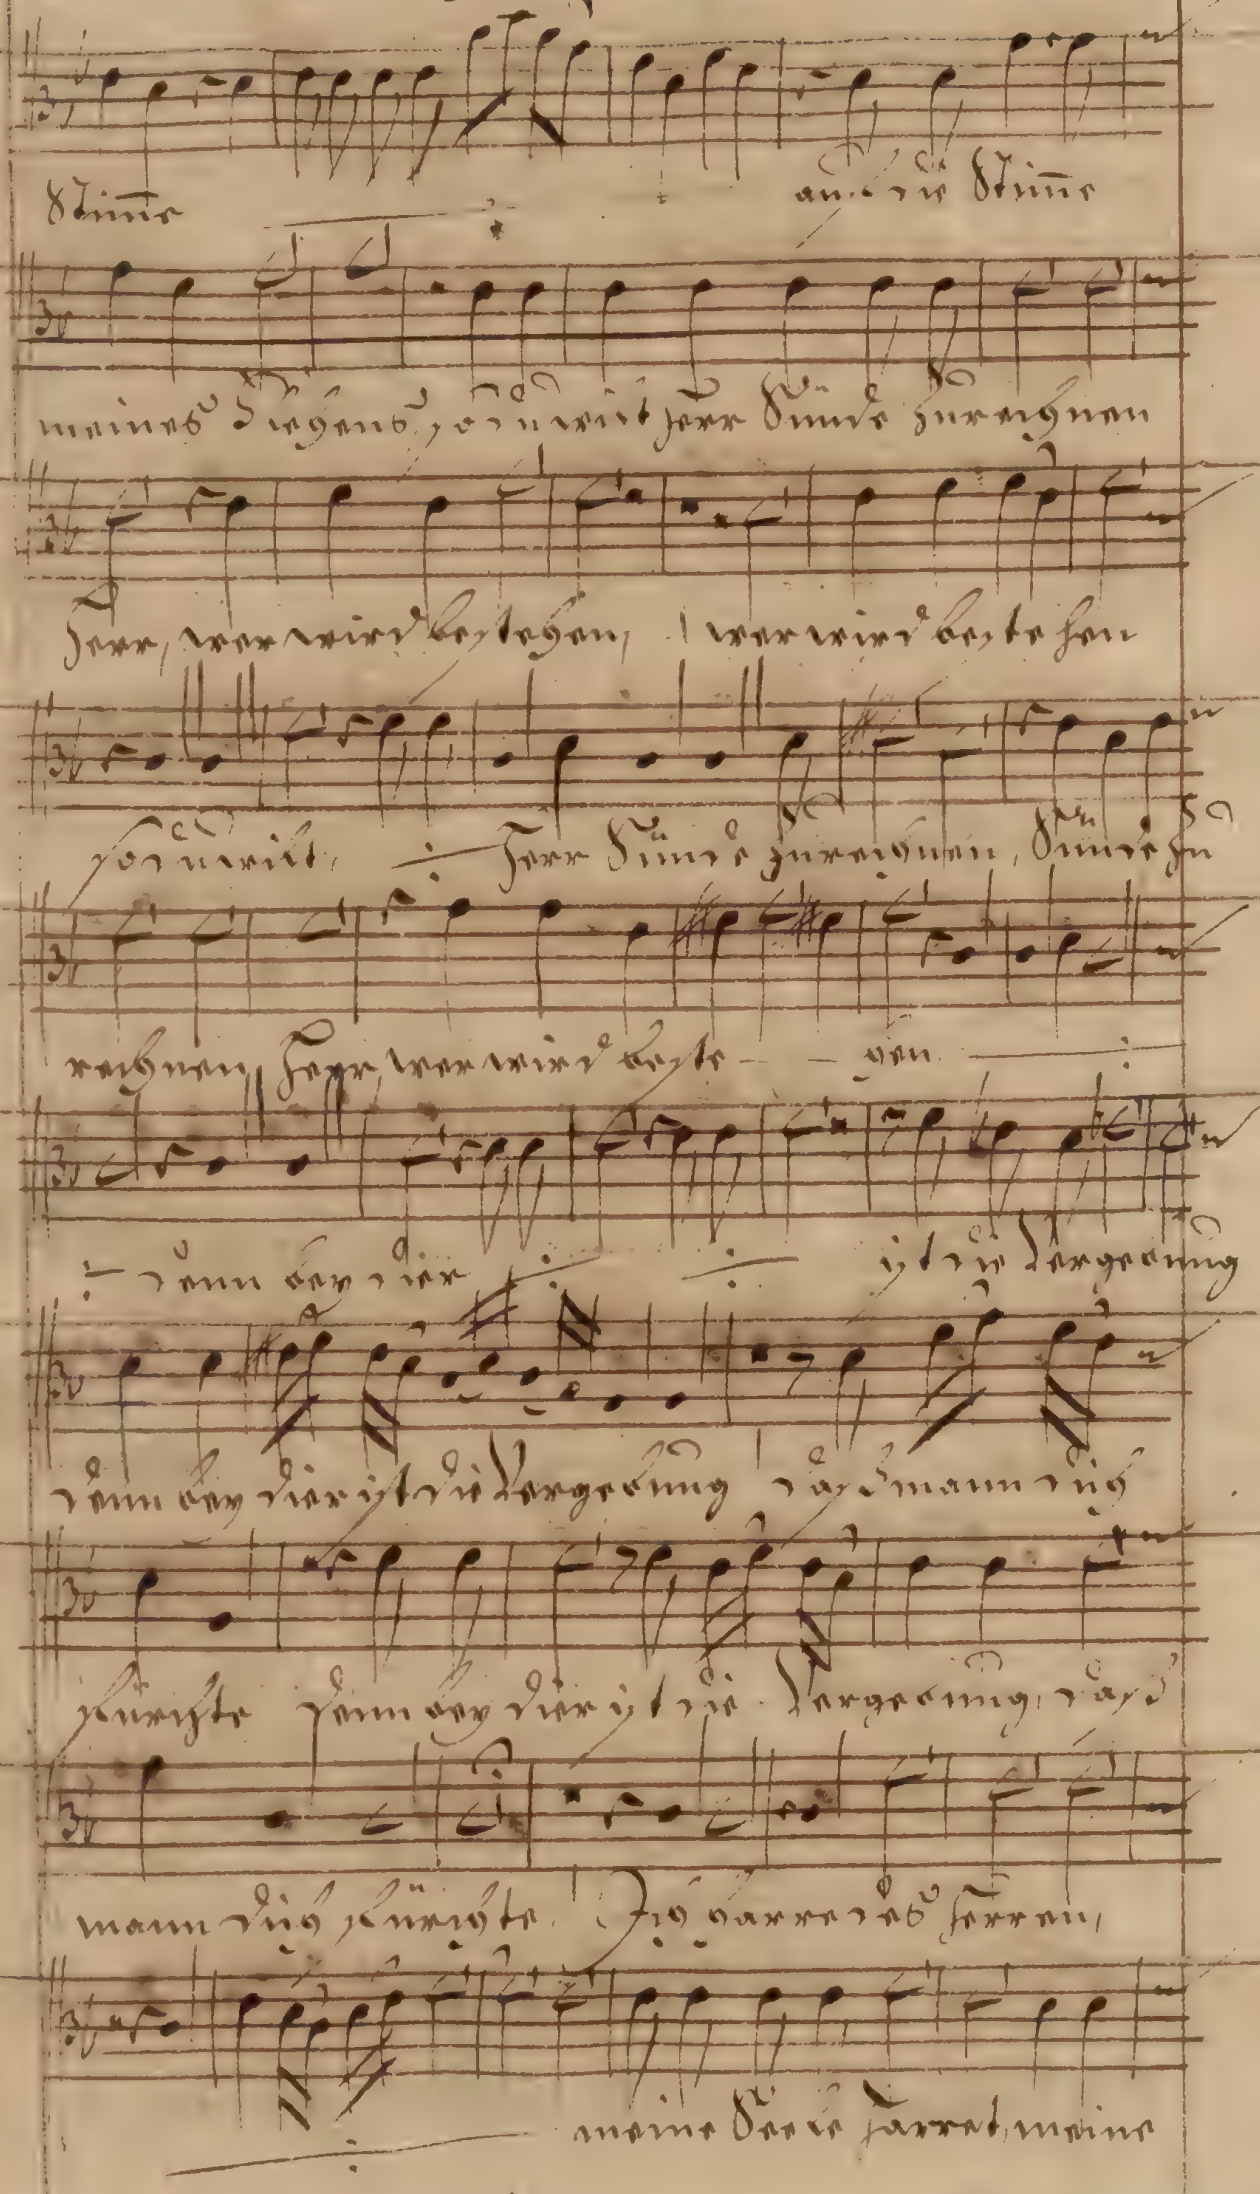 Stim̅e auf die Stim̅e
meines Fleħens, so du wilt Herr Sünde Zurechnen
Herr, wer wird bestehen, wer wird bestehen
so du wilt, Herr Sünde zurechnen, Sünde zu
rechnen, Herr, wer wird beste - - hen
denn bey dier ist die Vergebung
denn bey dier ist die Vergebung daß mann dich
fürchte denn bey dier ist die Vergebung, daß
mann dich fürchte. Ich harre des Herren,
meine Seele harret, meine